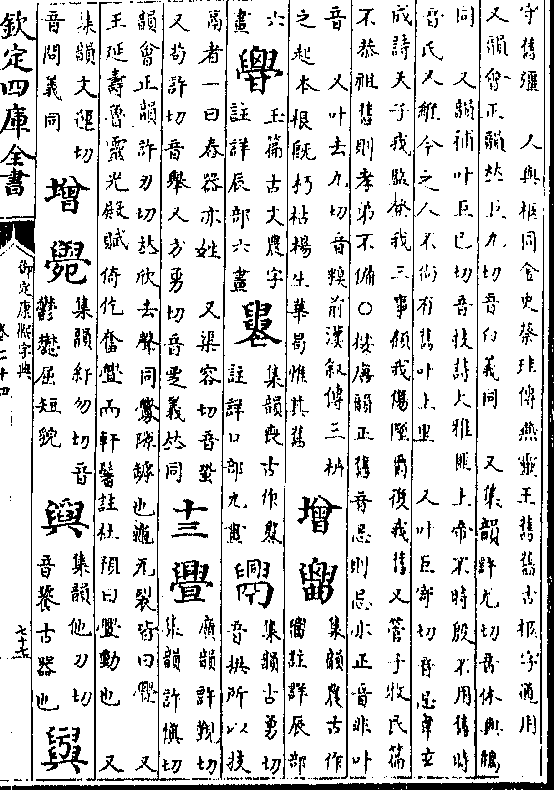 守舊疆　又與柩同金史蔡珪傳燕靈王舊舊古柩字通用
又韻會正韻𠀤巨九切音臼義同　又集韻許尤切音休與鵂
同　又韻補叶巨已切音技詩大雅匪上帝不時殷不用舊時
音氏又維今之人不尚有舊叶上里　又叶巨寄切音忌韋玄
成詩天子我監登我三事顧我傷隊爵復我舊又管子牧民篇
不恭祖舊則孝弟不備〇按唐韻正舊音忌則忌亦正音非叶
音　又叶去九切音糗前漢敘傳三枿
之起本根既朽枯楊生華曷惟其舊
增
集韻農古作
註詳辰部
六
畫
玉篇古文農字
註詳辰部六畫
集韻喪古作
註詳口部九畫
集韻古勇切
音拱所以挾
鬲者一曰舂器亦姓　又渠容切音蛩
又茍許切音舉又方勇切音覂義𠀤同
十三
釁
廣韻許覲切
集韻許慎切
韻會正韻許刃切𠀤欣去聲同釁隙罅也龜兆裂皆曰釁　又
王延壽魯靈光殿賦倚仡奮舋而軒鬐註杜預曰舋動也　又
集韻文運切
音問義同
增
集韻紆勿切音
鬱㯮屈短貌
集韻他刀切
音饕古器也
欽定四庫全書
御定康熙字典
卷二十四
七十七